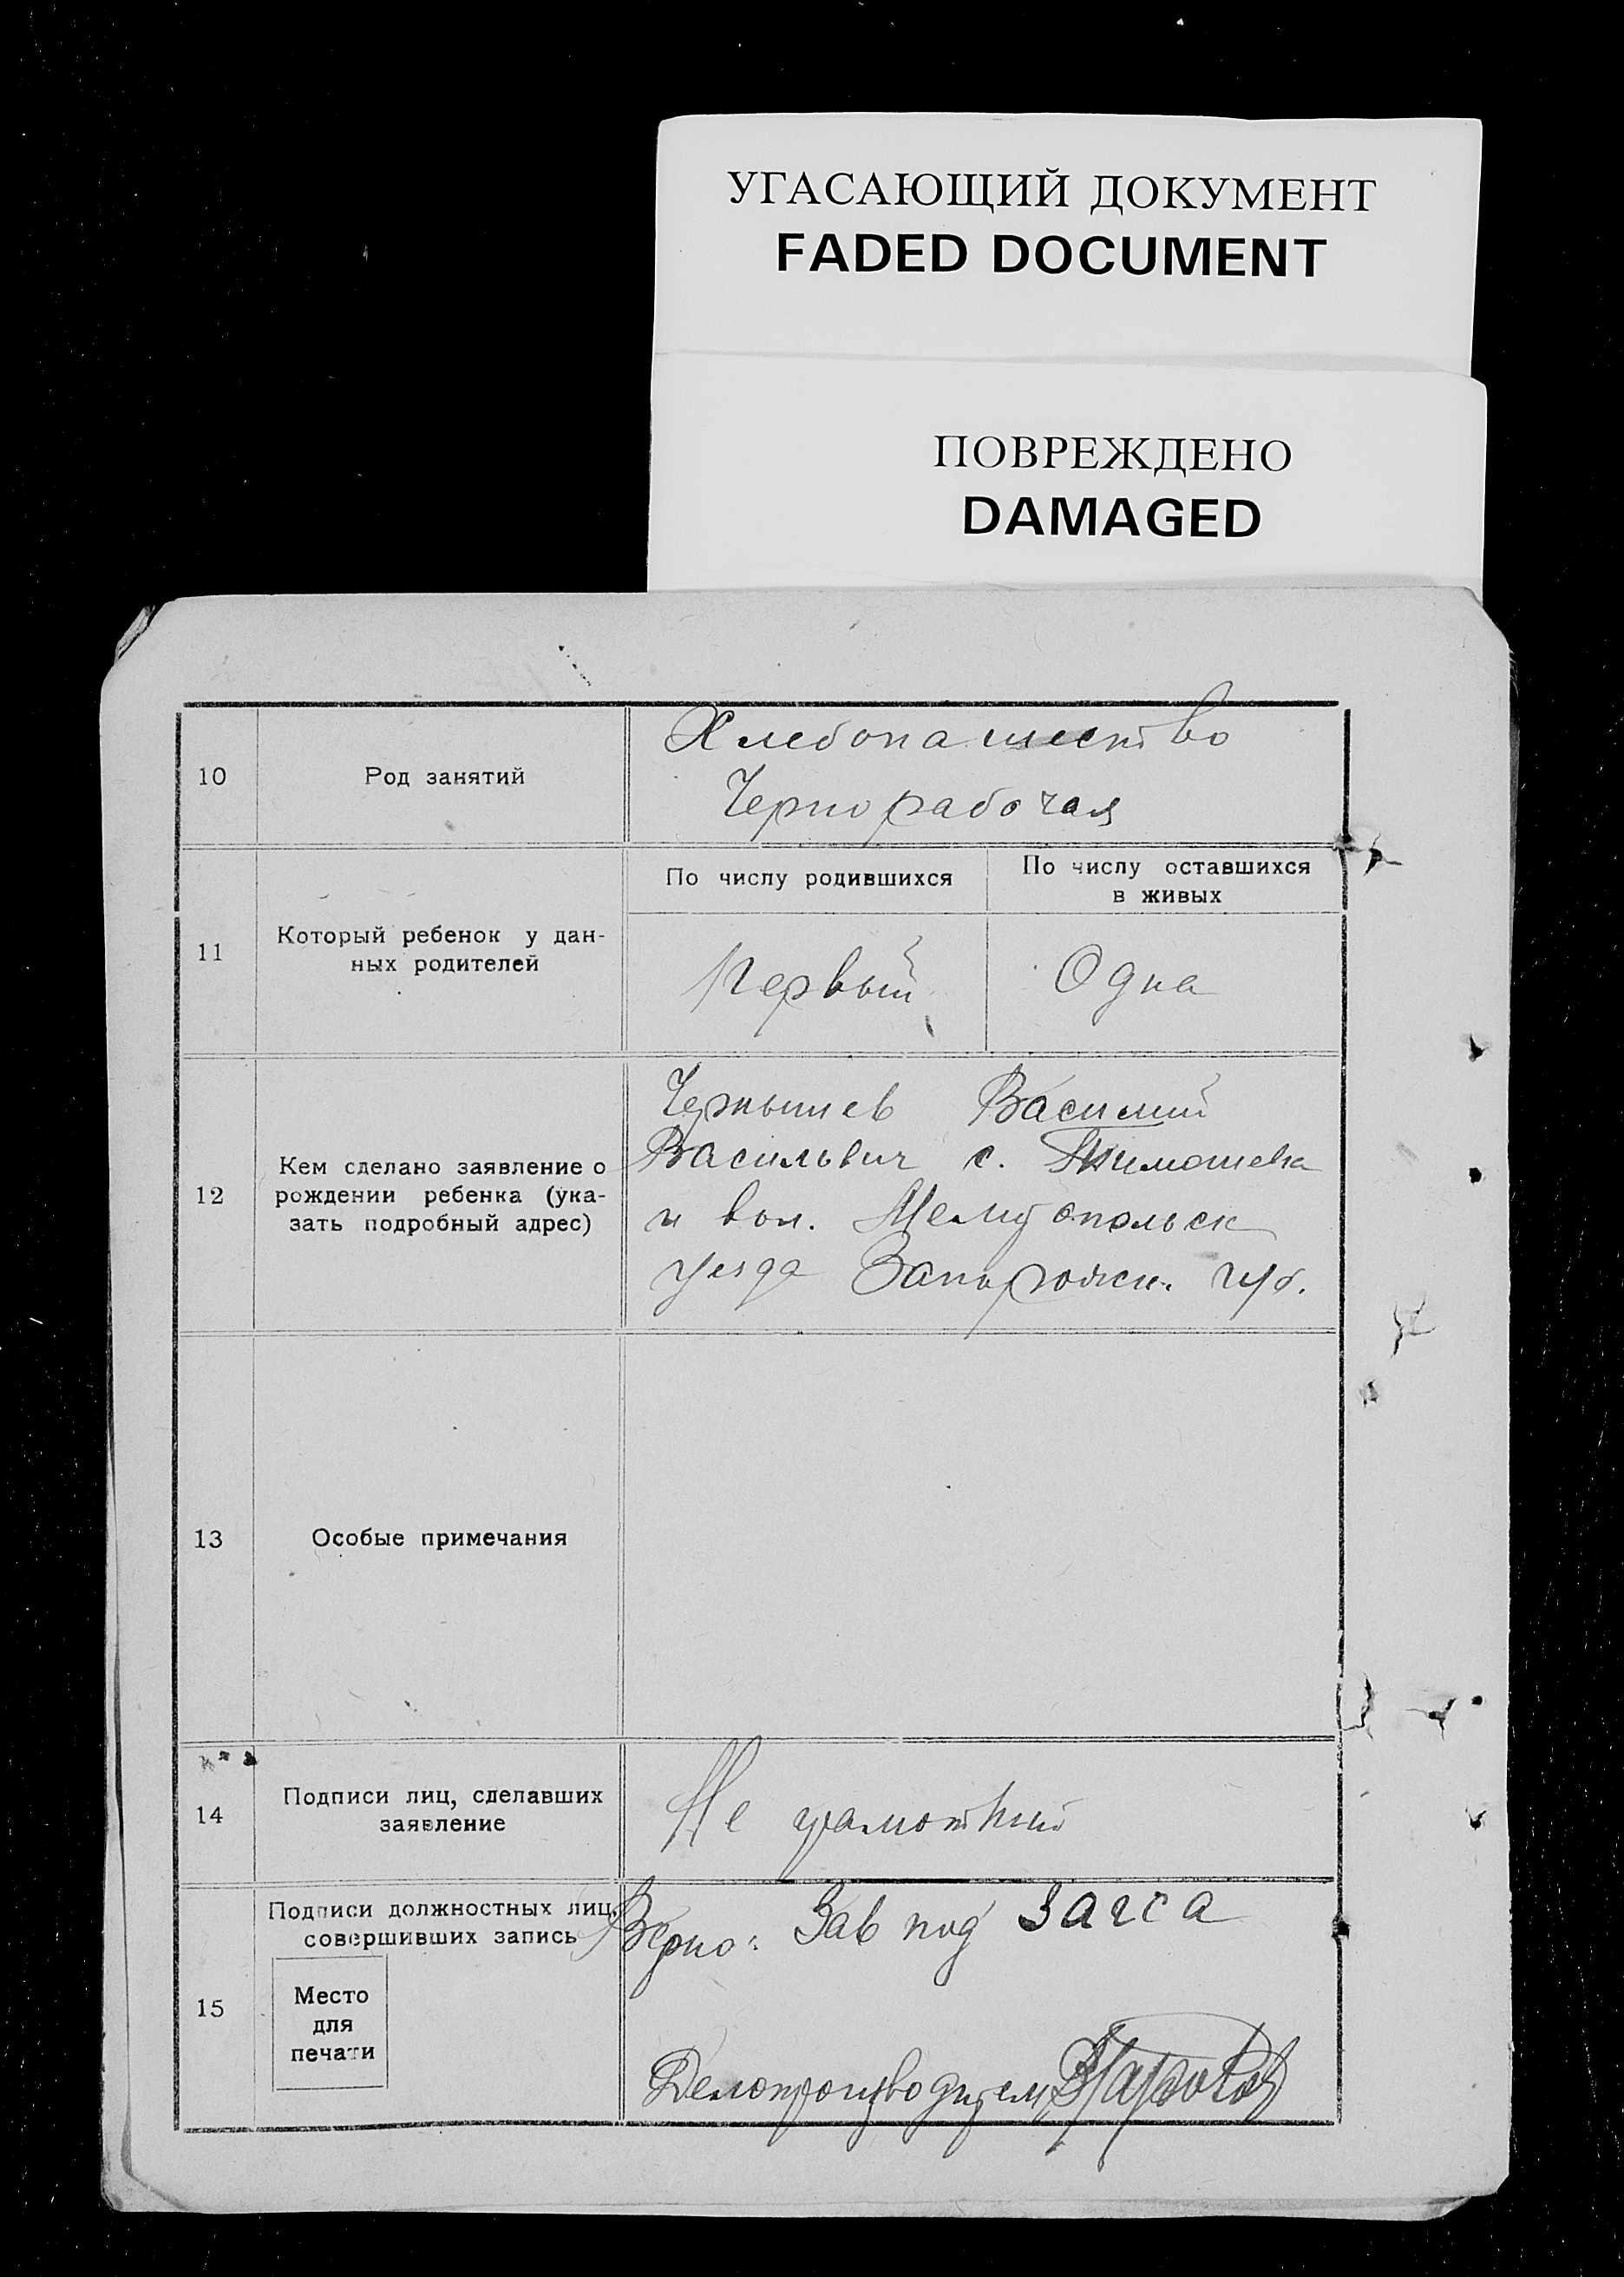 УГАСАЮЩИЙ ДОКУМЕНТ
FADED DOCUMENT
ПОВРЕЖДЕНО
DAMAGED
10
Род занятий
Хлебопашество
Чернорабочая
11
Который ребенок у дан-
ных родителей
По числу родившихся
Первый
По числу оставшихся
в живых
Одна
12
Кем сделано заявление о
рождении ребенка (ука-
зать подробный адрес)
Чернышев Василий
Васильвич с. Тимошевка
и вол. Мелитопольск
уезда Запорожск. губ.
13
Особые примечания
14
Подписи лиц, сделавших
заявление
Не грамотный
15
Подписи должностных лиц,
совершивших запись
Место
для
печати
Верно: Зав под Загса
Делопроизводитель